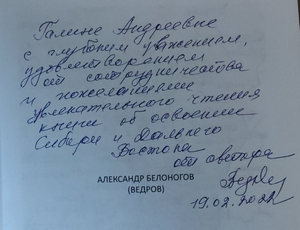 Галине Андреевне
с глубоким уважением,
удовлетворением
от сотрудничества
и пожеланиями
увлекательного чтения
книги об освоении
Сибири и Дальнего
Востока
от автора
АЛЕКСАНДР БЕЛОНОГОВ
(ВЕДРОВ)
Ведров
19.02.2022